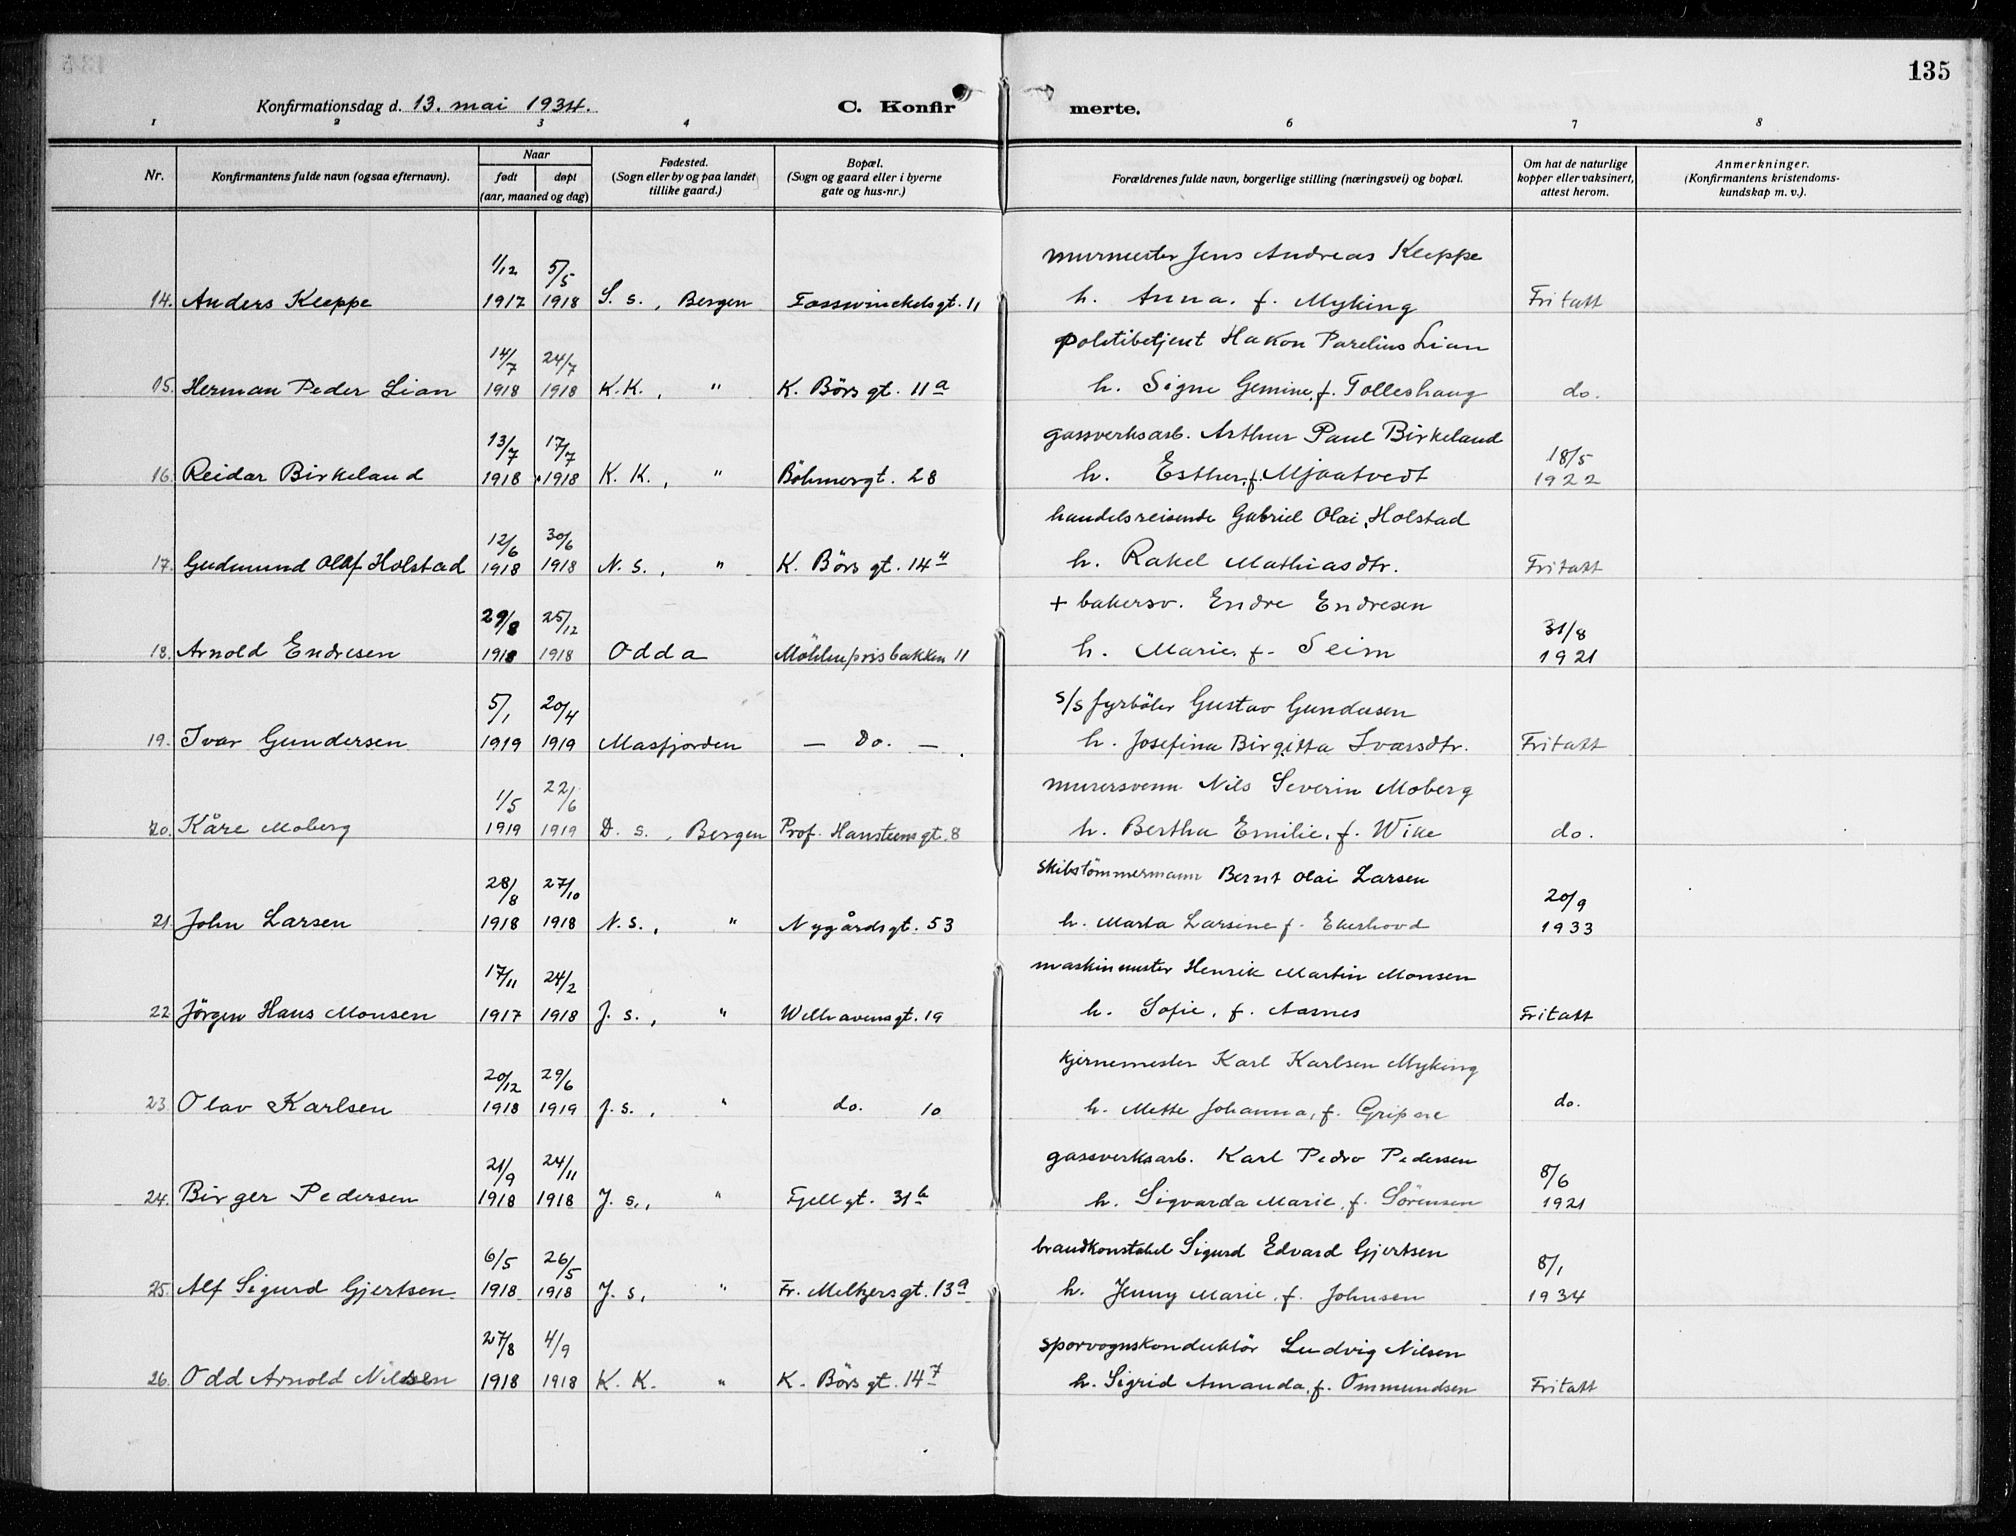 135
Konfirmationsdag d. 13. mai 1934. C. Konfirmerte.
1 2 3 4 6 7 8
Nr. Konfirmantens fulde navn (ogsaa efternavn). Naar født døpt (aar, maaned og dag) Fødested. (Sogn eller by og paa landet tillike gaard.) Bopæl. (Sogn og gaard eller i byerne gate og hus-nr.) Forældrenes fulde navn, borgerlige stilling (næringsvei) og bopæl. Om hat de naturlige kopper eller vaksinert, attest herom. Anmerkninger. (Konfirmantens kristendomskundskap m. v.).
1/12 5/5 murmester Jens Andreas Kleppe
14. Anders Kleppe 1917 1918 S. s., Bergen Fosswinckelsgt. 11 h. Anna. f. Myking Fritatt
14/7 24/7 politibetjent Hakon Parelius Lian
15. Herman Peder Lian 1918 1918 K.K., " K. Börs gt. 11a h. Signe Gemine, f. Tolleshaug do.
13/7 17/7 gassverksarb. Arthur Paul Birkeland 18/5
16. Reidar Birkeland 1918 1918 K. K., " Böhmergt. 28 h. Esther, f. Mjaatvedt 1922
12/6 30/6 handelsreisende Gabriel Olai Holstad
17. Gudmund Olaf Holstad 1918 1918 N. s., " K. Börs gt. 14 h. Rakel Mathiasdtr. Fritatt
29/8 25/12 + bakersv. Endre Endresen 31/8
18. Arnold Endresen 1918 1918 Odda Möhlenprisbakken 11 h. Marie, f. Seim 1921
5/1 20/4 s/s fyrböter Gustav Gundersen
19. Ivar Gundersen 1919 1919 Masfjorden — Do. — h. Josefina Birgitta Ivarsdtr. Fritatt
1/5 22/6 murersvenn Nils Severin Moberg
20. Kåre Moberg 1919 1919 D. s., Bergen Prof. Hansteensgt. 8 h. Bertha Emilie, f. Wike do.
28/8 27/10 skibstömmermann Bernt Olai Larsen 20/9
21. John Larsen 1918 1918 N. s., " Nygårdsgt. 53 h. Marta Larsine f. Ekerhovd 1933
17/11 24/2 maskinmester Henrik Martin Monsen
22 Jörgen Hans Monsen 1917 1918 J. s., " Welhavensgt. 19 h. Sofie, f. Aasnes Fritatt
20/12 29/6 kjernemester Karl Karlsen Myking
23 Olav Karlsen 1918 1919 J. s., " do. 10 h. Mette Johanna, f. do.
21/9 24/11 gassverksarb. Karl Pedro Pedersen 8/6
24. Birger Pedersen 1918 1918 J. s., " Fjellgt. 31b h. Sigvarda Marie, f. Sörensen 1921
6/5 26/5 brandkonstabel Sigurd Edvard Gjertsen 8/1
25. Alf Sigurd Gjertsen. 1918 1918 J. s, " Fr. Meltzersgt. 13a h. Jenny Marie, f. Johnsen 1934
27/8 4/9 sporvognskonduktör Ludvig Nilsen
26. Odd Arnold Nilsen 1918 1918 K. K. " K. Börs gt. 14 7 h. Sigrid Amanda, f. Ommundsen Fritatt